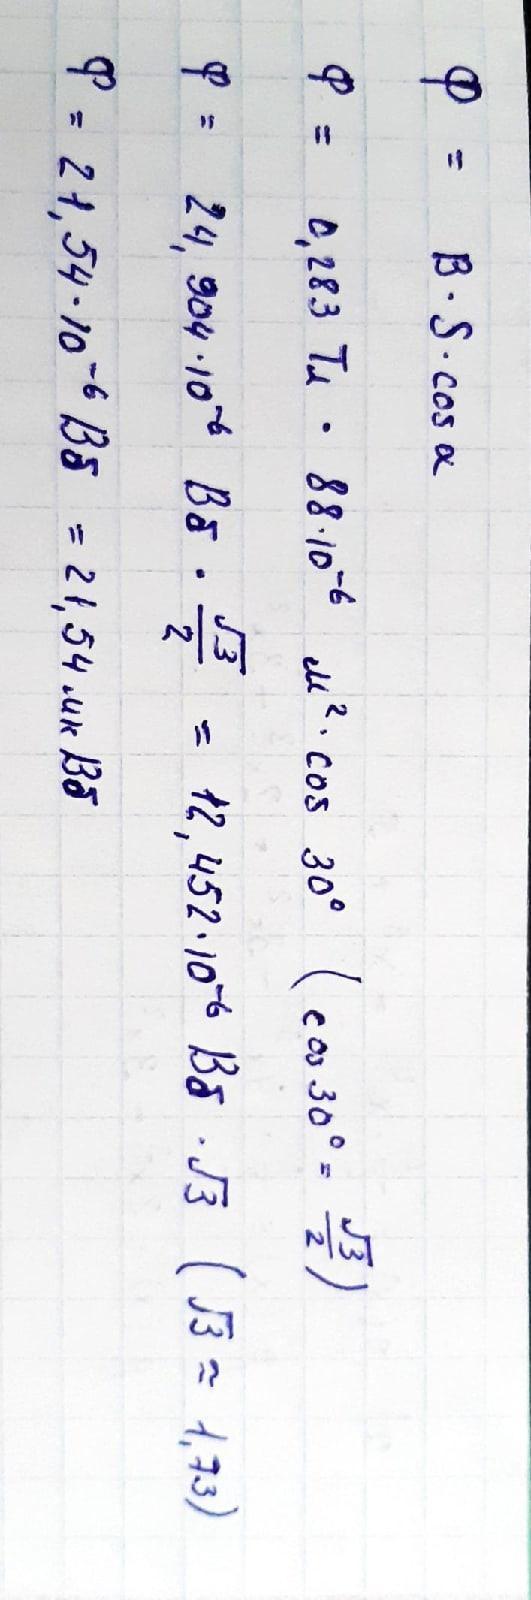 Ф = B · S · cos α
Ф = 0,283 Тл · 88·10⁻⁶ м² · cos 30° (cos 30° = √3/2)
Ф = 24,904·10⁻⁶ Вб · √3/2 = 12,452·10⁻⁶ Вб · √3 (√3 ≈ 1,73)
Ф = 21,54·10⁻⁶ Вб = 21,54 мкВб